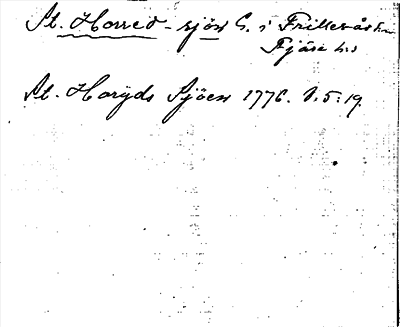 St. Horred-sjön S. i Frillesås sn
Fjäre hd
St. Horyds Sjöen 1776. V. 5:19.